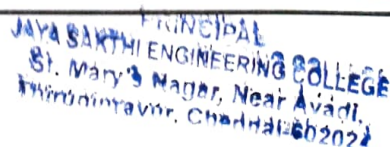 PRINCIPAL
JAYA SAKTHI ENGINEERING COLLEGE
St. Mary's Nagar, Near Avadi,
Thiruninravur, Chennai-602024